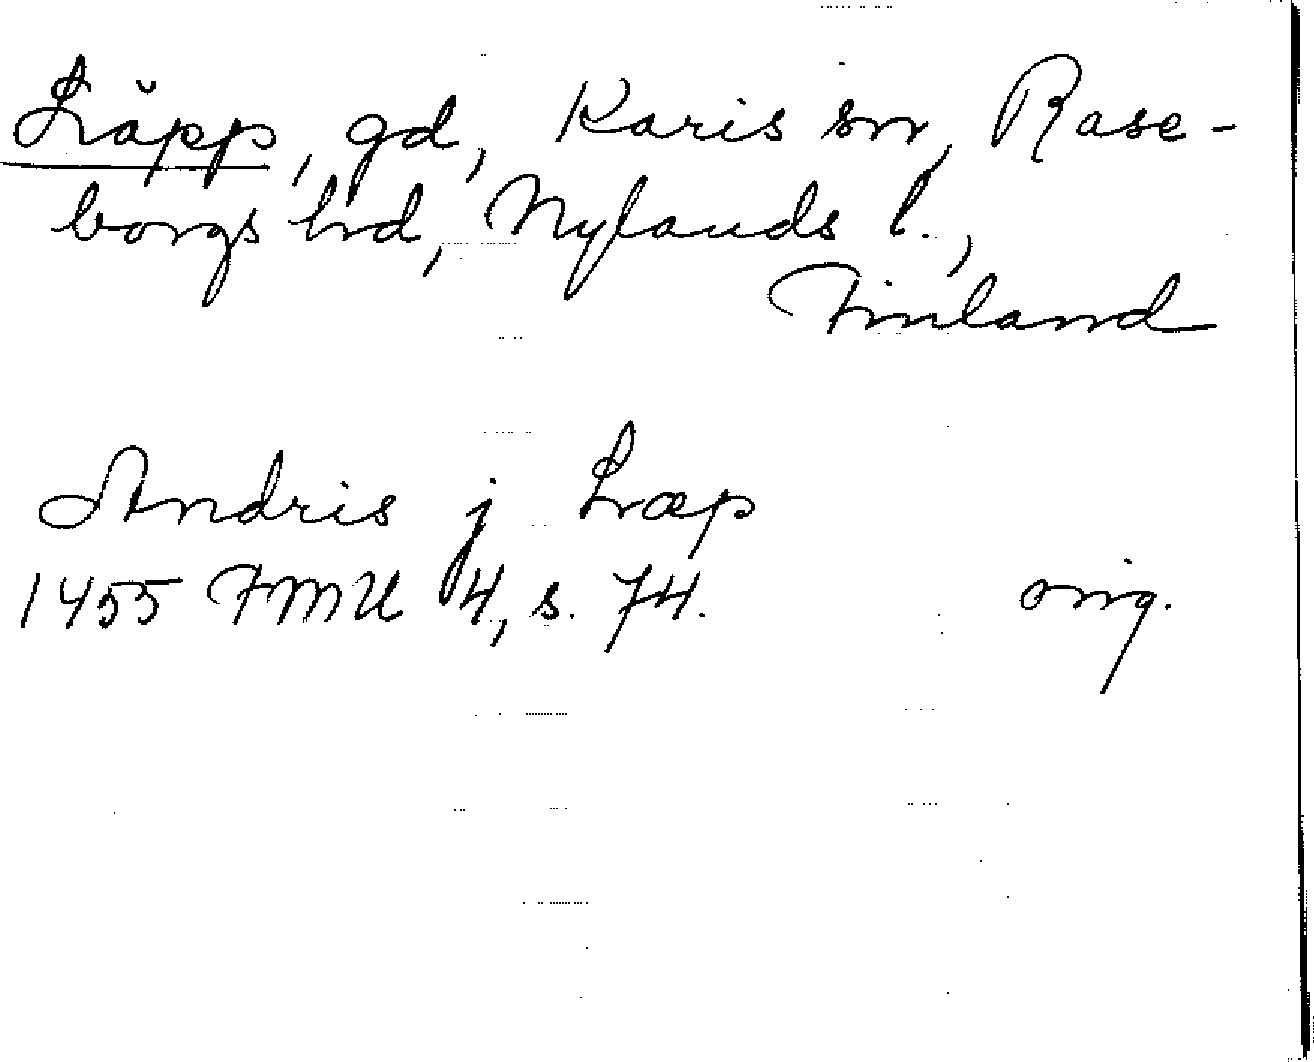 Läpp, gd, Karis sn, Rase-
borgs hd, Nylands l.,
Finland
Andris j Læp
1455 FMU 4, s. 74. orig.